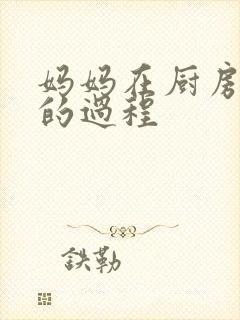 妈妈在厨房
的过程
鉄勒